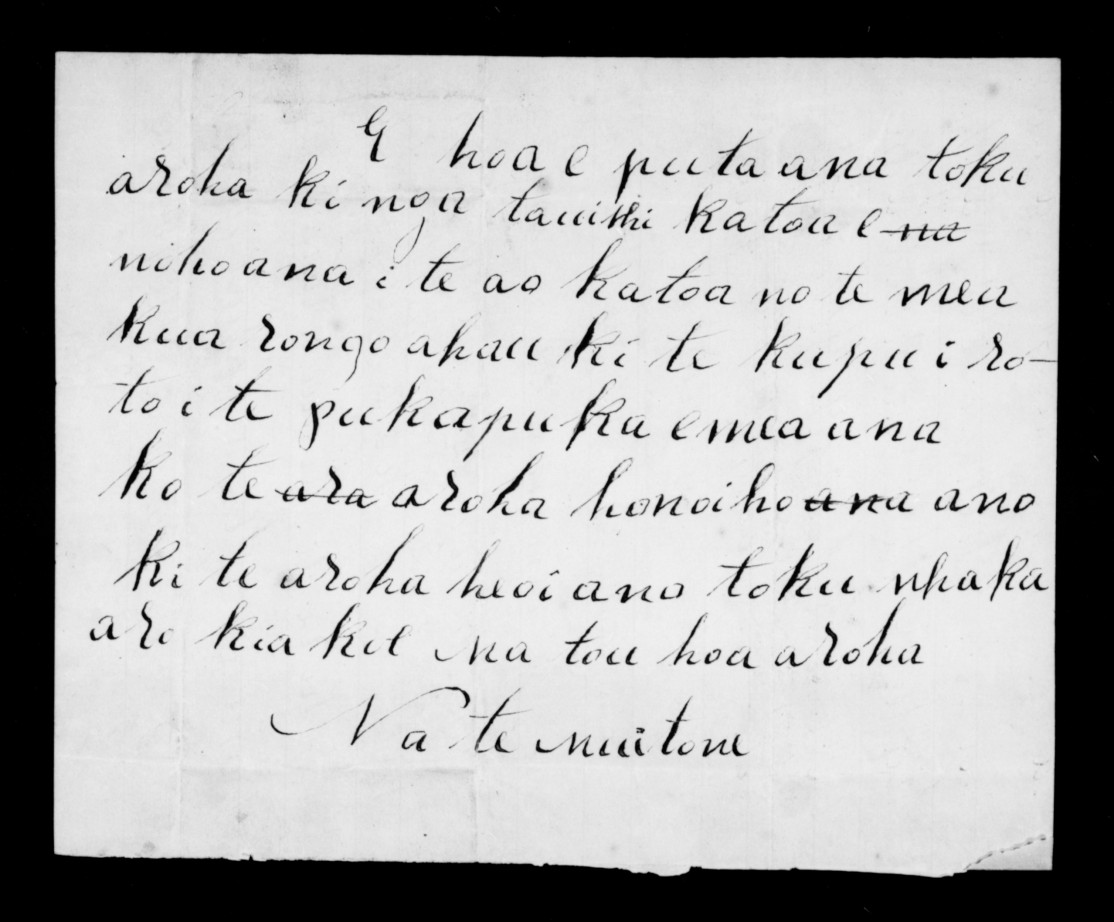 E hoa e puta ana toku
aroha ki nga tauiwi katoa e ~~na~~
noho ana i te ao katoa no te mea
kua rongo ahau ki te kupu i ro-
to i te pukapuka e mea ana
ko te ~~ara~~ aroha honoiho ~~ana~~ ano
ki te aroha heoi ano toku whaka
aro kia koe Na tou hoa aroha
Na te